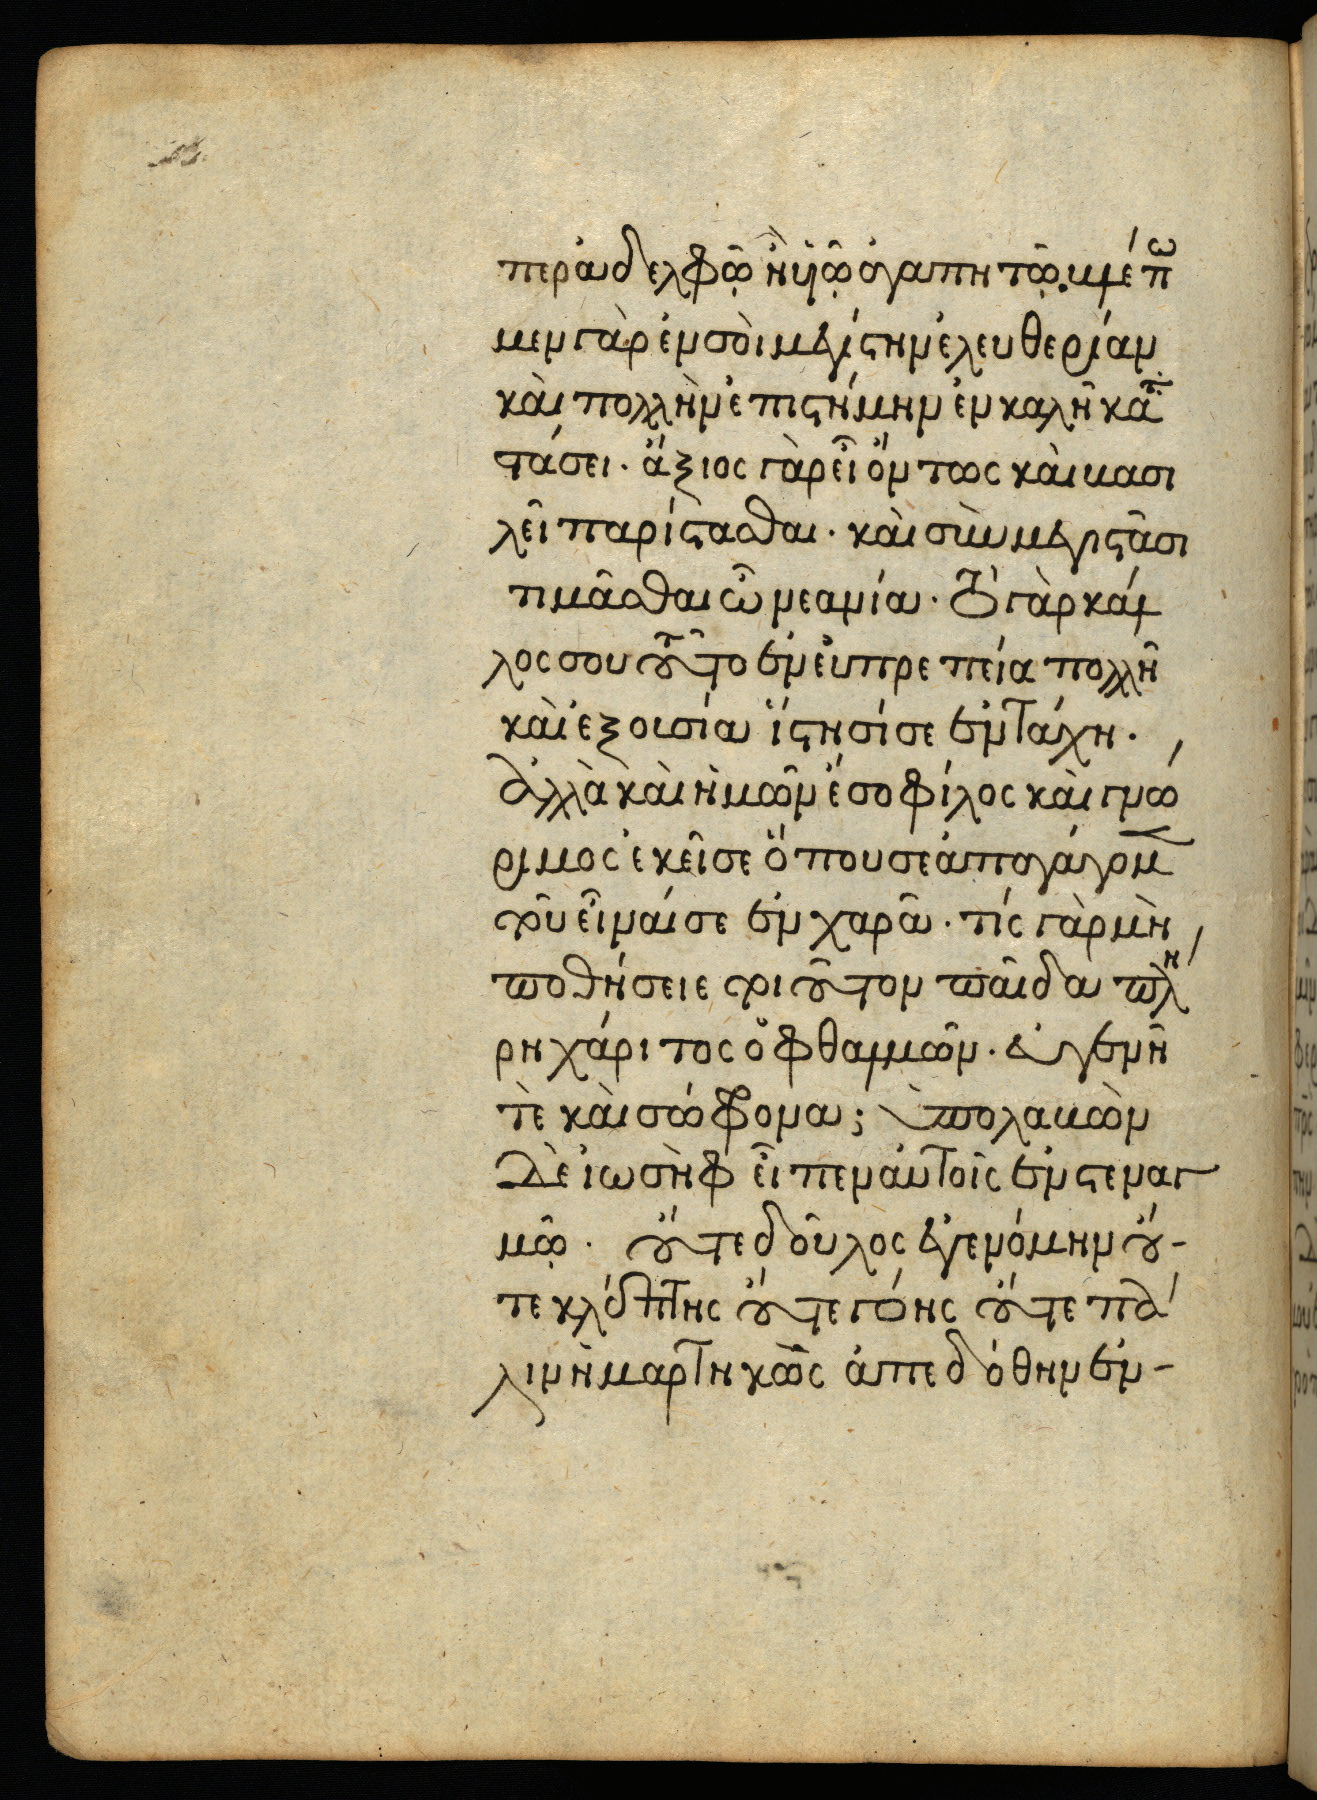 περ ἀδελφῶ ἢ υἱῶ ἀγαπητῶ. βλέπω
μεν γὰρ ἐν σοὶ μεγίστην ἐλευθερίαν
καὶ πολλὴν ἐπιστήμην ἐν καλῆ κατα
στάσει · ἄξιος γὰρ εἶ ὄντως καὶ βασι
λεῖ παρίστασθαι · καὶ σὺν μεγιστᾶσι
τιμᾶσθαι ὦ νεανία · τὸ γὰρ κάλ
λος σου τοῦτο ἐν εὐπρεπεία πολλῆ
καὶ ἐξουσία ἵστησί σε ἐν τάχει ·
ἀλλὰ καὶ ἡμῶν ἔσο φίλος καὶ γνώ
ριμος ἐκεῖσε ὅπου σε ἀπαγάγομεν
τοῦ εἶναί σε ἐν χαρᾶ · τίς γὰρ μὴ
ποθήσειε τοιοῦτον παῖδα πλή
ρη χάριτος ὀφθαλμῶν · εὐγενῆ
τὲ καὶ σώφρονα; ὑπολαβὼν
δὲ ἰωσὴφ εἶπεν αὐτοῖς ἐν στεναγ
μῶ · οὔτε δοῦλος ἐγενόμην οὔ-
τε κλέπτης οὔτε γόης οὔτε πά
λιν ἡμαρτηκὼς ἀπεδόθην ἐν-